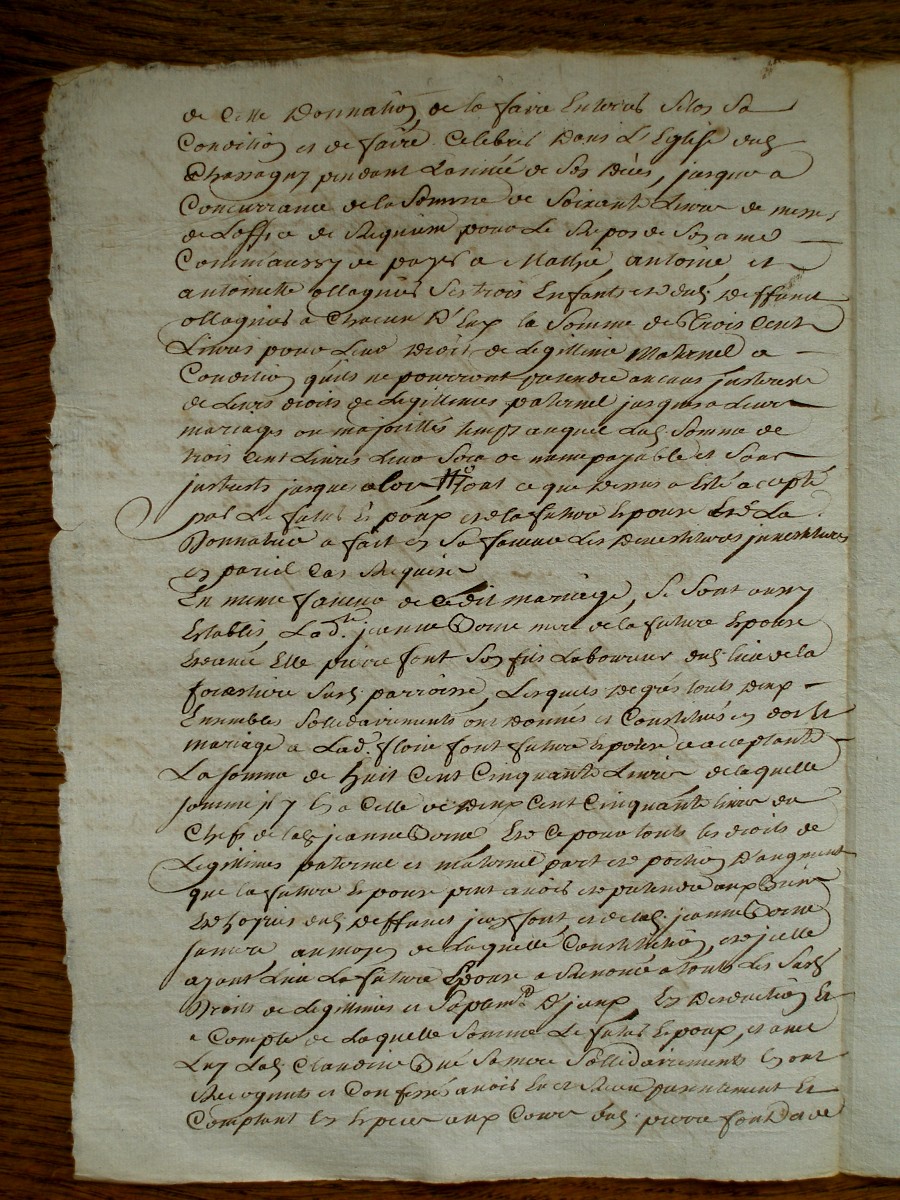 de cette Donnation, de la faire Enterrer selon sa
Condition et de faire Celebrer Dans L'Eglise dud.
Chassagny pendant Lannée de son Déces, jusques a
Concurrance de la Somme de Soixante Livres de messes
de Loffice de Requiem pour Le Repos de Son ame
Comme aussy de payer a Mathie antoine et
antoinette ollagnier Ses trois Enfants et dud. Deffunct
ollagnier a Chacun D'Eux la Somme de Trois Cent
Livres pour Leur Droit de Legittime Maternel a
Condition quils ne pourront pretendre aucuns jnterests
de Leurs droits de Legittimes paternel jusques a Leurs
mariages ou majorités temps auquel Lad. Somme de
trois Cent Livres Leur Sera de meme payable et Sans
jnterests jusques alors tout ce que Dessus a Esté accepté
par Le futur Epoux et la future Epouse Et La
Donnatrice a fait en Sa faveur Les Devestitures jnvestitures
en pareil Cas Requise
En meme faveur de Cedit mariage, Se Sont aussy
Establis Lad.te jeanne Dorne mere de la future Epouse
Et avec Elle pierre font Son fils Laboureur dud. lieu de la
forastiere Susd. parroisse, Lesquels De grés touts Deux
Ensembles Sollidairements ont Donnés et Constitués en dot Et
mariage a Lad. fleurie font future Epouse ce acceptante
La Somme de huit Cent Cinquante Livres de laquelle
Somme jl y En a Celle de Deux Cent Cinquante livres du
Chefs de lad. jeanne Dorne Et Ce pour touts les droits de
Legittimes paternel et maternel part et portion D'augment
que la future Epouse peut avoir et pretendre aux Biens
Et hoyries dud. Deffunct font, et de lad. jeanne Dorne
Sa mere au moyen de Laquelle Constitution, et jcelle
ayant Lieu La future Epouse a Renoncé a touts Les Susd.
Droits de Legittimes et D'jceux En Deduction Et
a Compte de Laquelle Somme Le futur Epoux, et avec
Luy Lad. Claudine Sa mere Sollidairements En ont
et Confessés avoir Eu et Receu presentement Et
Comptant En Especes aux Cours dud. pierre font